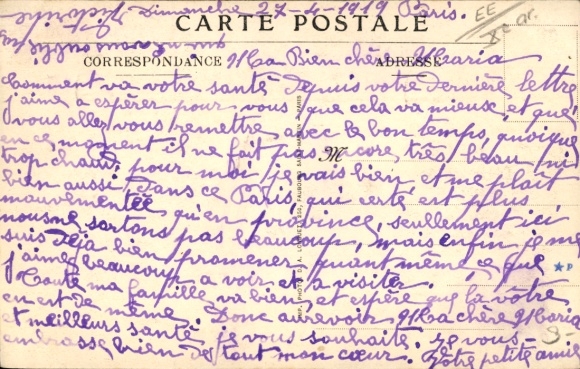 Dimanche 27-4-1919 Paris.
CARTE POSTALE
EE
8e ar.
CORRESPONDANCE
ADRESSE
Ma Bien chère Maria
Comment va votre santé depuis votre dernière lettre
j'aime a espérer pour vous, que cela va mieux, et que
vous allez vous remettre avec le bon temps, quoique
en ce moment il ne fait pas encore très beau, ni
trop chaud, pour moi je vais bien, et me plait
bien aussi dans ce Paris, qui certe est plus
mauvementée qu'en province, seullement ici
nous ne sortons pas beaucoup, mais enfin je me
suis déjà bien promener quant même, ce que
j'aime beaucoup a voir et a visiter.
Toute ma famille va bien, et espère que la vôtre
en est de même. Donc aurevoir Ma chère Maria
et meilleurs santé je vous souhaite. Je vous
embrasse bien de tout mon cœur. Votre petite amie
M
★ D